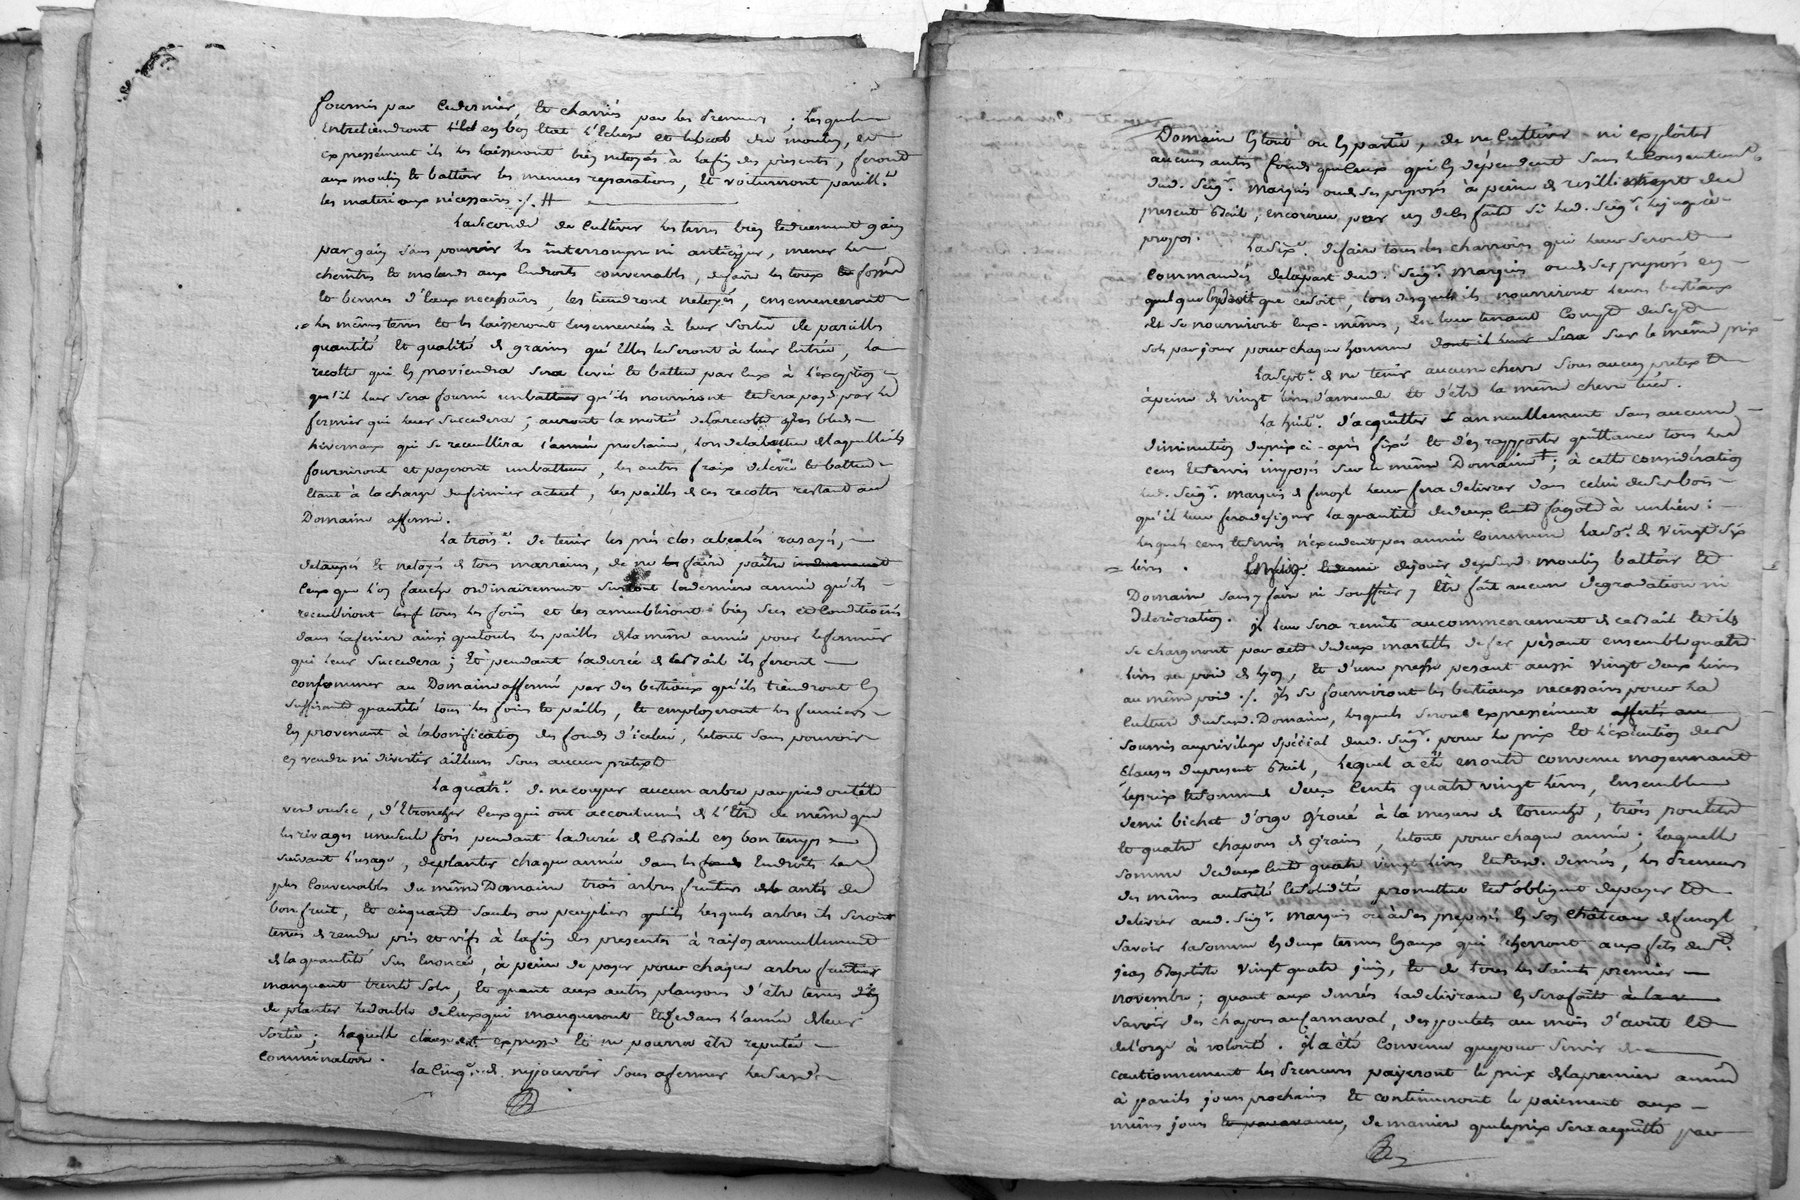 fournis par ce dernier, et charriés par les preneurs. Lesquels
entretiendront en bon état l'écluse et le béal du moulin, et
expressément ils les laisseront bien netoyés à la fin des présents, feront
aux moulin et battoir les menues reparations, et voitureront pareill.t
les materiaux nécessaires ./. #
La seconde de cultiver les terres bien et duement gain
par gain sans pouvoir les interrompre ni anticiper, mener les
cheintres et molards aux endroits convenables, de faire les
et bennes d'eaux necessaires, les tiendront netoyés, ensemenceront
les mêmes terres et les laisseront ensemencées à leur sortie de pareilles
quantité et qualité de grains qu'elles le seront à leur entrée, la
recolte qui en proviendra sera levée et battue par eux à l'exception
qu'il leur sera fourni un batteur qu'ils nourriront et sera payé par le
fermier qui leur succedera; auront la moitié de la recolte des bleds
hivernaux qui se recueillira l'année prochaine, lors de la battue de laquelle ils
fourniront et payeront un batteur, les autres fraix de levée et battue
étant à la charge du fermier actuel, les pailles de ces recoltes restant au
Domaine affermé.
La trois.e de tenir les prés clos abealés rasayés,
detaupés et netoyés de tous marrains, de ne faire paître
ceux que l'on fauche ordinairement surtout la derniere année qu'ils
recueilliront tous les foins et les ameubliront bien secs et conditionnés
dans la feniere ainsi que toutes les pailles de la même année pour le fermier
qui leur succedera; et pendant la durée de ce Bail ils feront
consommer au Domaine affermé par des bestiaux qu'ils tiendront en
suffisante quantité tous les foins et pailles, et employeront les fumiers
en provenant à la bonification des fonds d'icelui, le tout sans pouvoir
en vendre ni divertir ailleurs sous aucun pretexte
La quatr.e de ne couper aucun arbre par pied ou tête
verd ou sec, d'étroncher ceux qui ont accoutumés de l'être de même que
les rivages une seule fois pendant la durée de ce Bail en bon temps
suivant l'usage, de planter chaque année dans les endroits les
plus convenables du même Domaine trois arbres fruitiers antés de
bon fruit, et cinquante saules ou peupliers lesquels arbres ils seront
tenus de rendre pris et vifs à la fin des presents à raison annuellement
de la quantité sus énoncée, à peine de payer pour chaque arbre fruitier
manquant trente sols, et quant aux autres plansons d'être tenus
de planter le double de ceux qui manqueront dans l'année de leur
sortie; laquelle clause est expresse et ne pourra être reputée
comminatoire.
La cinq.e de ne pouvoir sous afermer le susd.
Domaine en tout ou en partie, de ne cultiver ni exploiter
aucuns autres fonds que ceux qui en dépendent sans le consentement
dud. Seig.r Marquis ou de ses préposés à peine de resiliement du
present Bail, encourue par ce seul fait si led. Seig.r le juge à
propos.
La six.e de faire tous les charrois qui leur seront
commandés de la part dud. Seig.r Marquis ou de ses préposés en
quelqu'endroit que ce soit, lors desquels ils nourriront leurs bestiaux
et se nourriront eux-mêmes, en leur tenant compte de sept
sols par jour pour chaque homme dont il leur sera sur le même prix
La sept.e de ne tenir aucune chevre sous aucun pretexte
à peine de vingt livres d'amende et d'être la même chevre tuée.
La huit.e d'acquitter annuellement sans aucune
diminution du prix ci-après fixé et d'en rapporter quittance tous les
cens et servis imposés sur le même Domaine ; à cette considération
led. Seig.r Marquis de fenoyl leur fera delivrer dans celui de ses bois
qu'il leur fera désigner la quantité de deux cents fagots à un lien :
lesquels cens et servis n'excedent pas année commune la so.e de vingt six
livres. Enfin de jouir desdits moulin battoir et
Domaine sans y faire ni souffrir y être fait aucune degradation ni
déterioration. Il leur sera remis au commencement de ce Bail et ils
se chargeront par acte de deux martells de fer pésant ensemble quatre
livres au poid de Lyon, et d'une presse pesant aussi vingt deux livres
au même poid ./. ils se fourniront les bestiaux necessaires pour la
culture dud. Domaine, lesquels seront expressément affectés au
soumis au privilege spécial dud. Seig.r pour le prix et l'exécution des
clauses du present Bail, lequel a été en outre convenu moyennant
le prix et somme de deux cents quatre vingt livres, ensemble un
demi bichet d'orge à la mesure de , trois poulets
et quatre chapons de grains, le tout pour chaque année; laquelle
somme de deux cents quatre vingt livres et susd. denrées, les preneurs
des mêmes autorité et solidité promettent et s'obligent de payer et
delivrer aud. Seig.r Marquis ou à ses préposés en son château de fenoyl
savoir la somme en deux termes égaux qui écherront aux fêtes de S.t
jean Baptiste vingt quatre juin, et de tous les Saints premier
novembre; quant aux denrées la delivrance en sera faite à la v
savoir des chapons au Carnaval, des poulets au mois d'août et
de l'orge à volonté. Il a été convenu que pour servir de
cautionnement les preneurs payeront le prix de la premiere année
à pareils jours prochains et continueront le paiement aux
mêmes jours et par avance, de maniere que le prix sera acquitté par